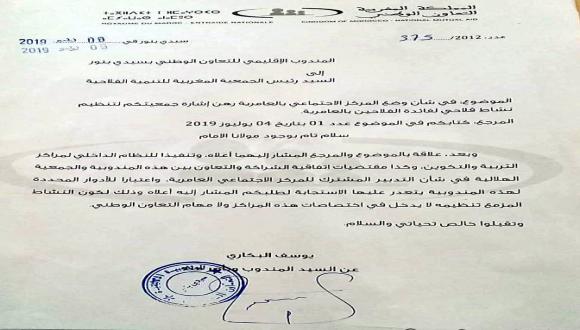 المملكة المغربية
التعاون الوطني
ROYAUME DU MAROC - ENTRAIDE NATIONALE
KINGDOM OF MOROCCO - NATIONAL MUTUAL AID
عدد: 2012/ 375
سيدي بنور في 08 2019
المندوب الإقليمي للتعاون الوطني بسيدي بنور
إلى
السيد رئيس الجمعية المغربية للتنمية الفلاحية
الموضوع: في شأن وضع المركز الاجتماعي بالعامرية رهن إشارة جمعيتكم لتنظيم
نشاط فلاحي لفائدة الفلاحين بالعامرية.
المرجع: كتابكم في الموضوع عدد 01 بتاريخ 04 يوليوز 2019
سلام تام بوجود مولانا الامام
وبعد، علاقة بالموضوع والمرجع المشار إليهما أعلاه، وتنفيذا للنظام الداخلي لمراكز
التربية والتكوين، وكذا مقتضيات اتفاقية الشراكة والتعاون بين هذه المندوبية والجمعية
الهلالية في شأن التدبير المشترك للمركز الاجتماعي العامرية، واعتبارا للأدوار المحددة
لهذه المندوبية يتعذر علينا الاستجابة لطلبكم المشار إليه أعلاه وذلك لكون النشاط
المزمع تنظيمه لا يدخل في اختصاصات هذه المراكز ولا مهام التعاون الوطني.
وتقبلوا خالص تحياتي والسلام.
يوسف البكاري
عن السيد المندوب